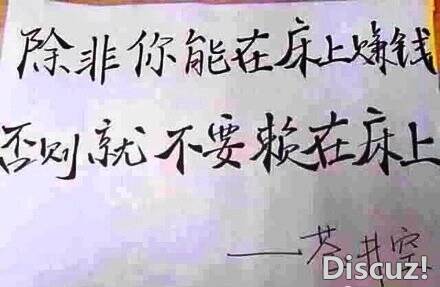 除非你能在床上赚钱
否则就不要赖在床上
——苍井空
Discuz!